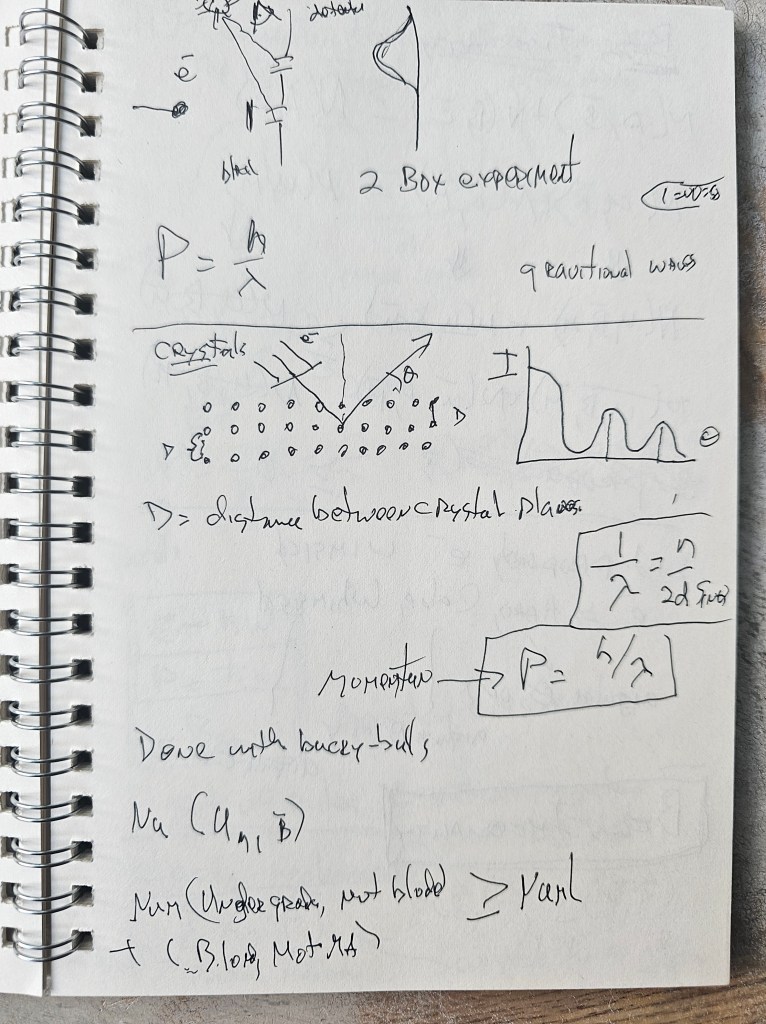 e⁻
2 Box experiment
P = h/λ
gravitional waves
Crystals
e⁻
θ
D
D
I
θ
D = distance between crystal planes.
1/λ = n/2d sin(θ)
Momentum → P = h/λ
Done with bucky-balls
Nu (U, n, B̄)
Num (Undergrads, not blond) ≥
+ (Blond, Not